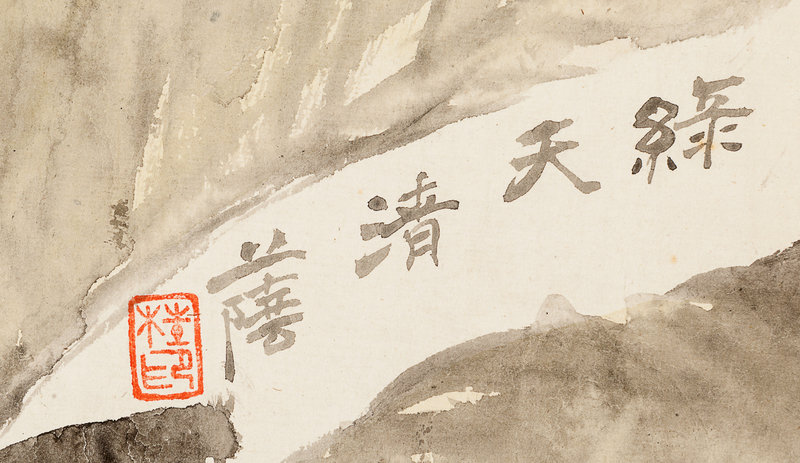 綠天清蔭
桂印